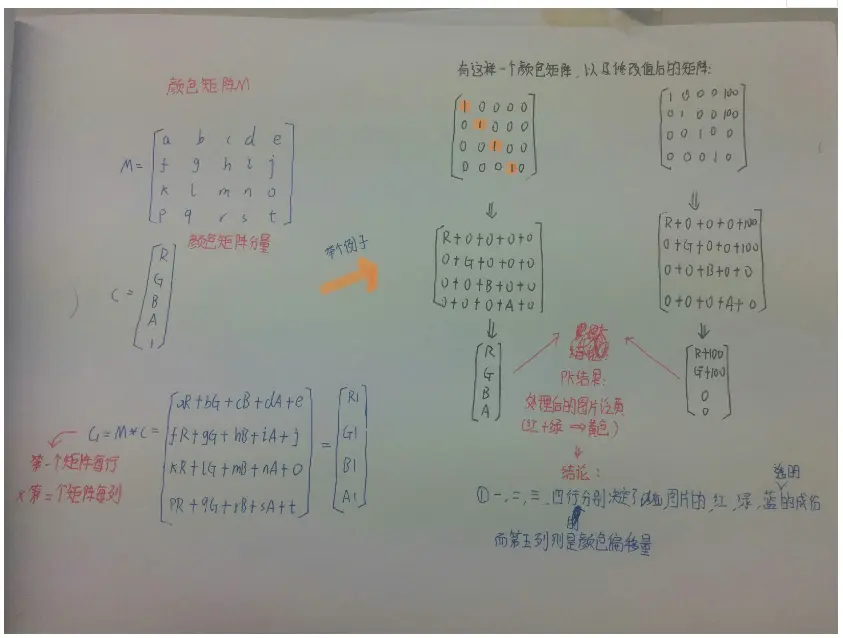 颜色矩阵M
M=
a b c d e
f g h i j
k l m n o
p q r s t
颜色矩阵分量
C=
R
G
B
A
1
举个例子
C1=M*C=
aR+bG+cB+dA+e
fR+gG+hB+iA+j
kR+lG+mB+nA+o
pR+qG+rB+sA+t
=
R1
G1
B1
A1
第一个矩阵每行
x第二个矩阵每列
有这样一个颜色矩阵,以及修改值后的矩阵:
1 0 0 0 0
0 1 0 0 0
0 0 1 0 0
0 0 0 1 0
⇓
R+0+0+0+0
0+G+0+0+0
0+0+B+0+0
0+0+0+A+0
⇓
R
G
B
A
1 0 0 0 100
0 1 0 0 100
0 0 1 0 0
0 0 0 1 0
⇓
R+0+0+0+100
0+G+0+0+100
0+0+B+0+0
0+0+0+A+0
⇓
R+100
G+100
0
0
PK结果:
处理后的图片泛黄
(红+绿⇒黄色)
结论:
透明
①一,二,三,四行分别决定了图片的,红,绿,蓝的成份
而第五列则是颜色偏移量